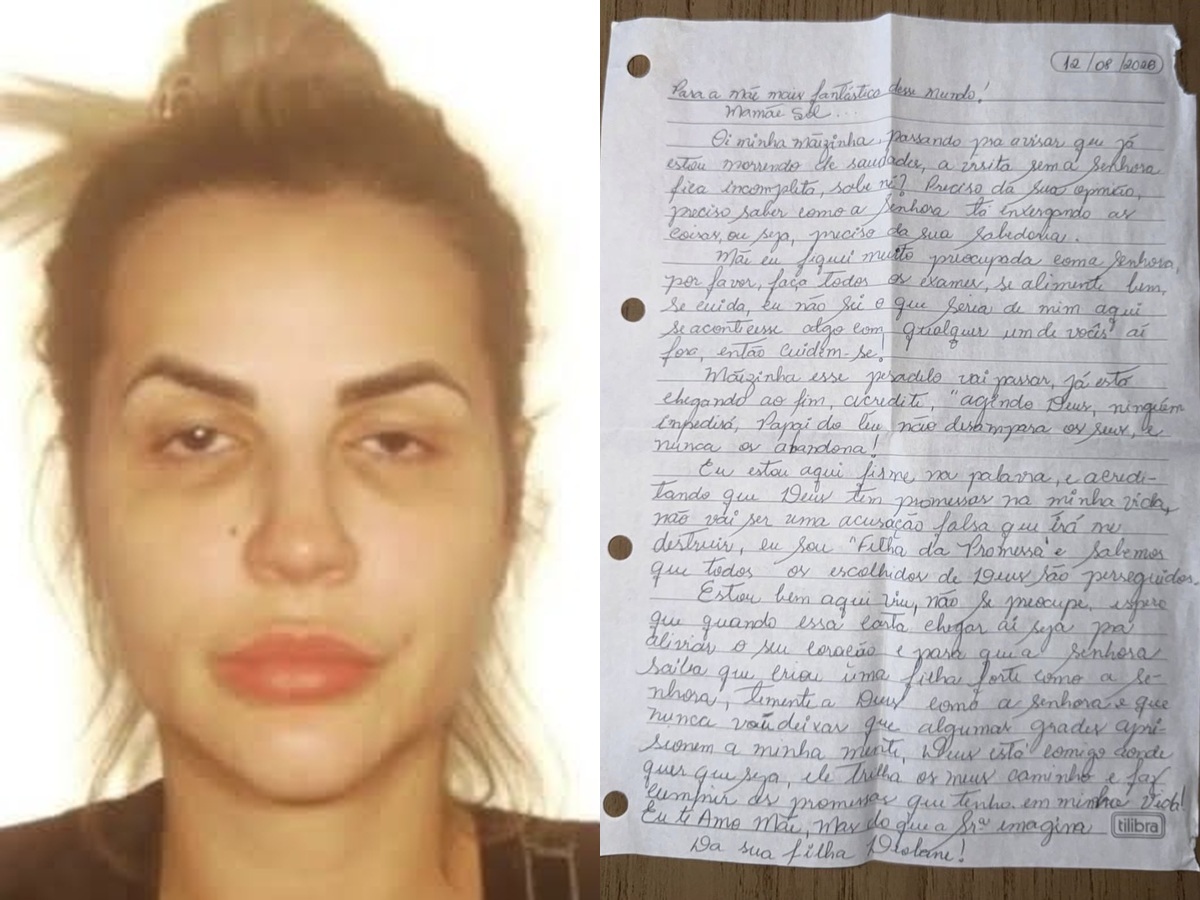 12/08/2026
Para a mãe mais fantástica desse mundo!
Mamãe Sol...
Oi minha mãizinha, passando pra avisar que já
estou morrendo de saudades, a visita sem a Senhora
fica incompleta, sabe né? Preciso da sua opinião,
preciso saber como a Senhora tá enxergando as
coisas, ou seja, preciso da sua sabedoria.
Mãe eu fiquei muito preocupada com a senhora,
por favor, faça todos os exames, se alimente bem,
se cuida, eu não sei o que seria de mim aqui
se acontecesse algo com qualquer um de vocês aí
fora, então cuidem-se!
Mãizinha esse pesadelo vai passar, já está
chegando ao fim, acredite, "agindo Deus, ninguém
impedirá, Papai do Céu não desampara os seus, e
nunca os abandona!
Eu estou aqui firme na palavra, e acredi-
tando que Deus tem promessas na minha vida,
não vai ser uma acusação falsa que irá me
destruir, eu sou "Filha da Promessa" e sabemos
que todos os escolhidos de Deus são perseguidos.
Estou bem aqui viu, não se preocupe, espero
que quando essa carta chegar aí seja pra
aliviar o seu coração e para que a senhora
saiba que criou uma filha forte como a se-
nhora, temente a Deus como a senhora e que
nunca vai deixar que algumas grades apri-
sionem a minha mente, Deus está comigo aonde
quer que seja, ele trilha os meus caminho e faz
cumprir as promessas que tenho em minha vida!
Eu te Amo Mãe, mas do que a Srª imagina
tilibra
Da sua filha Deolane!